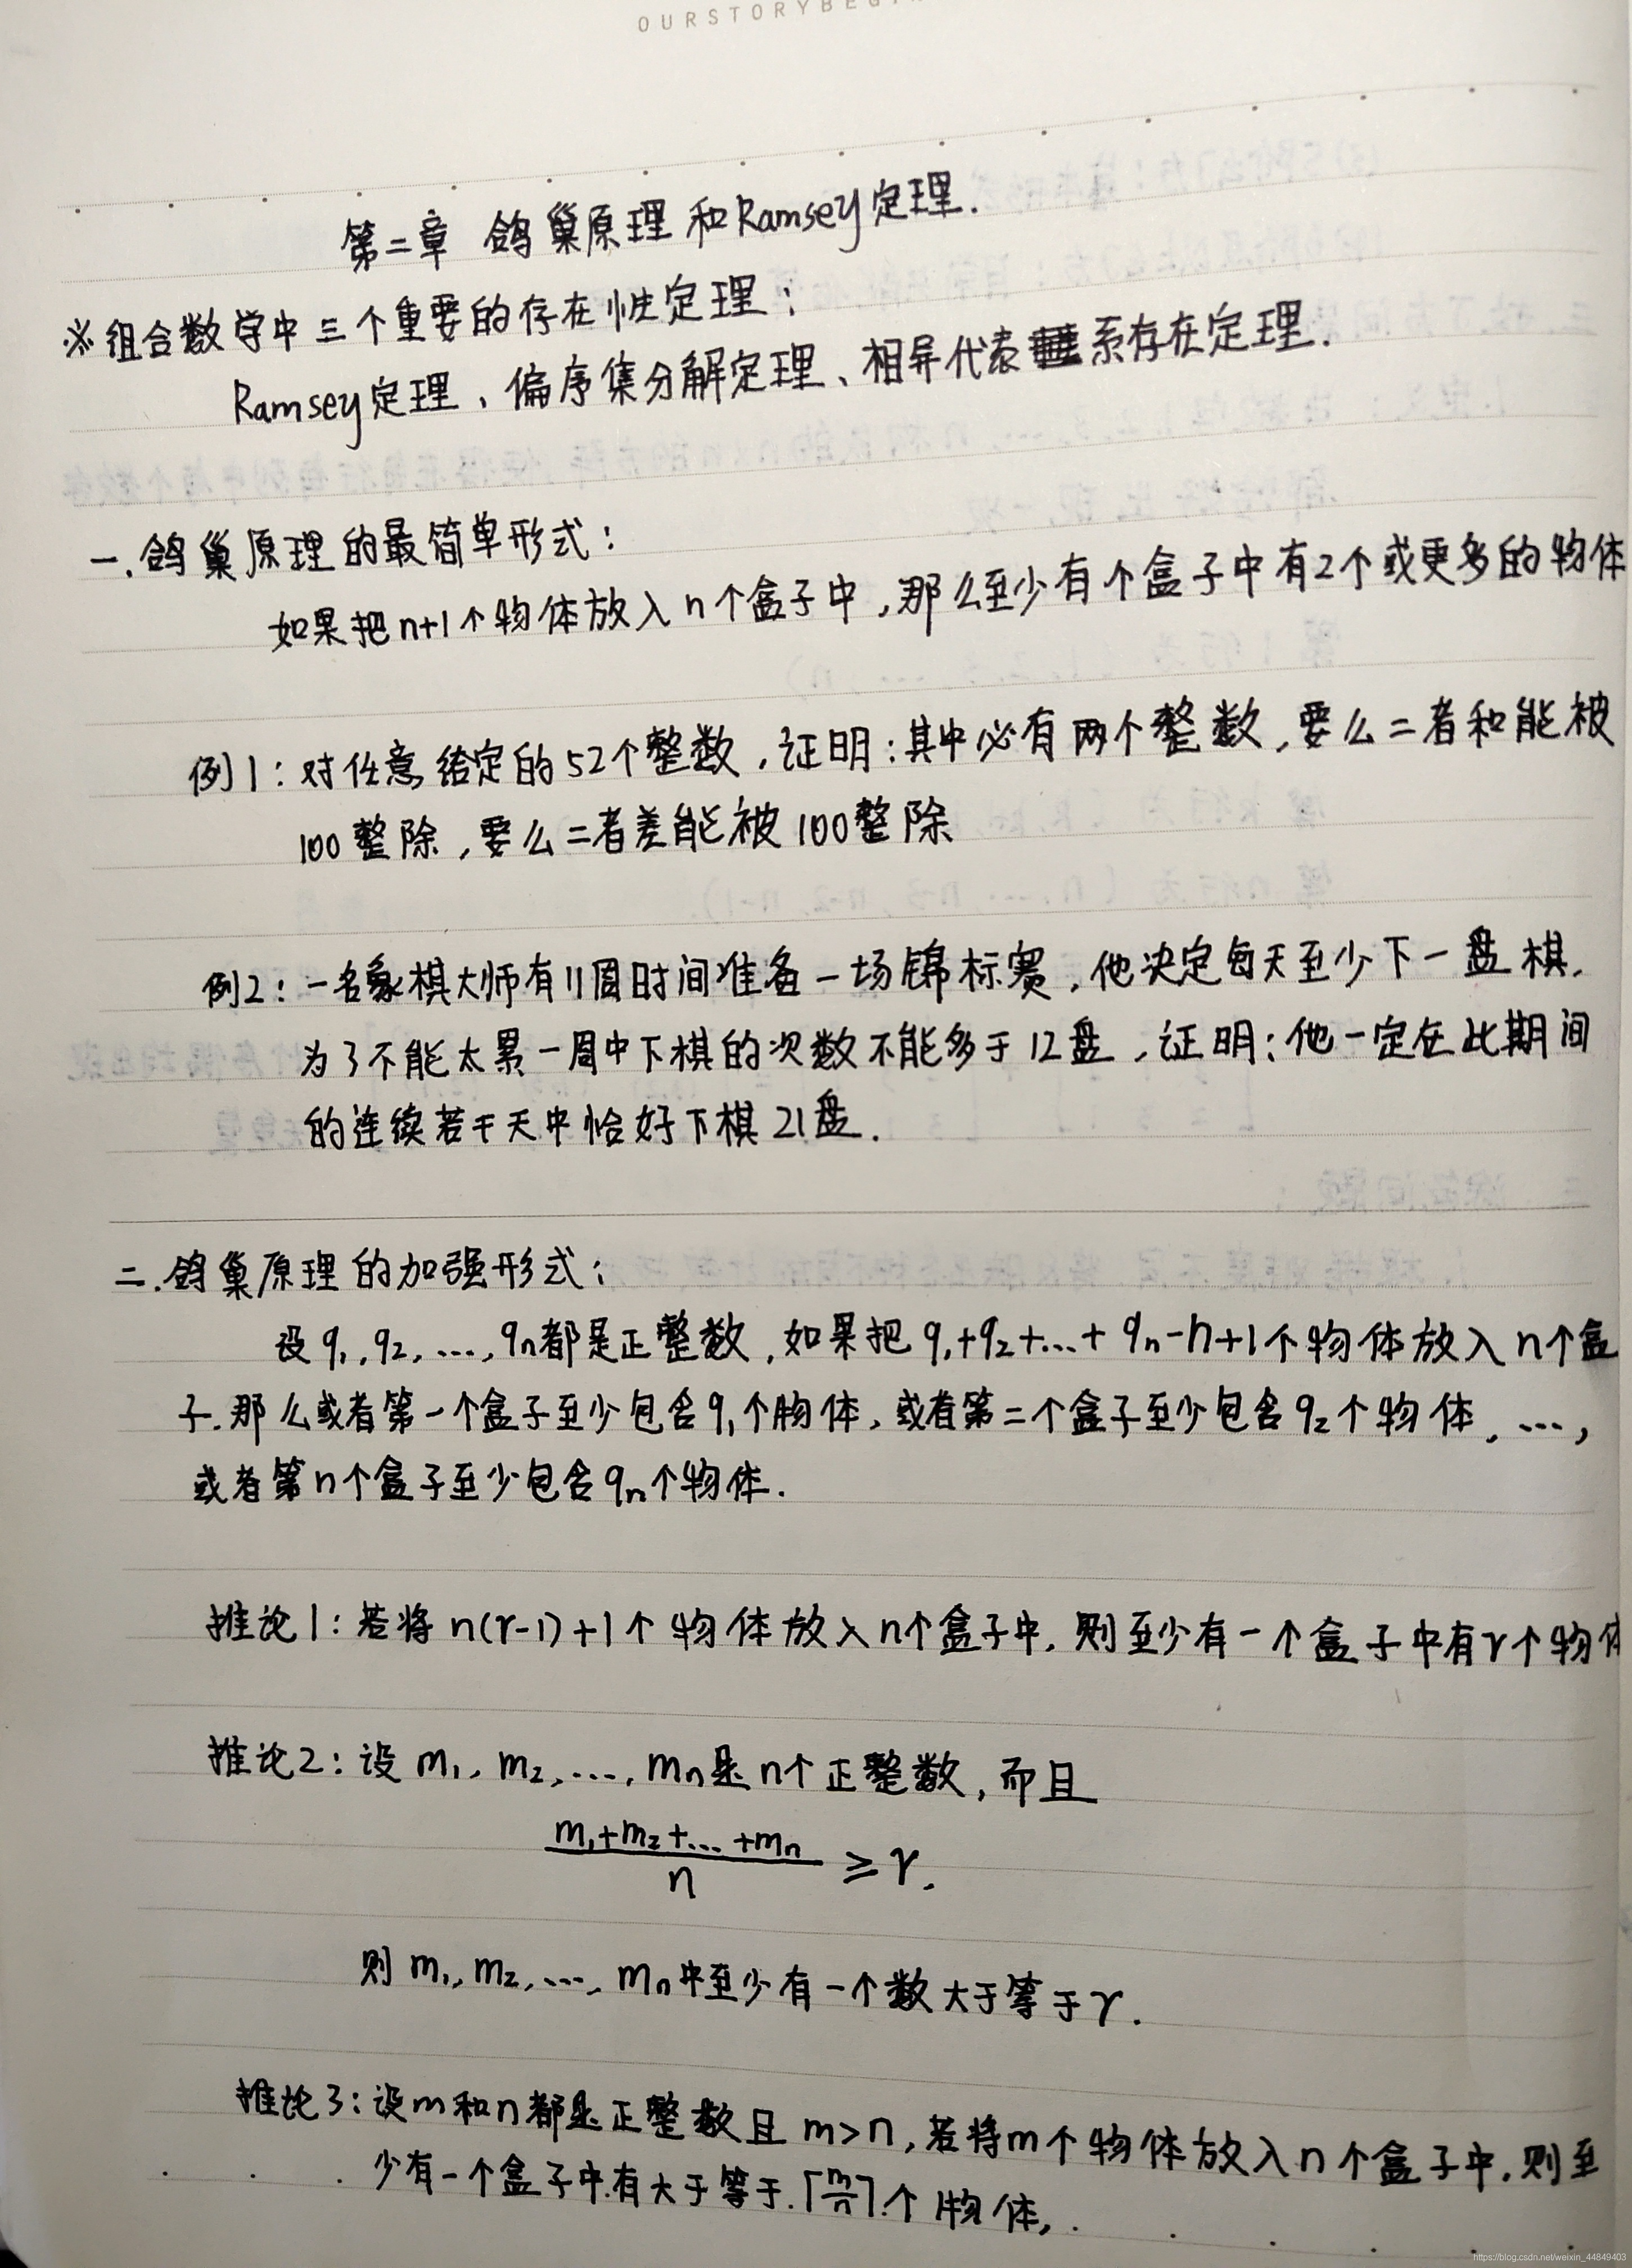 OURSTORYBEG
第二章 鸽巢原理和Ramsey定理.
※组合数学中三个重要的存在性定理:
Ramsey定理、偏序集分解定理、相异代表系存在定理.
一.鸽巢原理的最简单形式:
如果把n+1个物体放入n个盒子中,那么至少有个盒子中有2个或更多的物体
例1:对任意给定的52个整数,证明:其中必有两个整数,要么二者和能被
100整除,要么二者差能被100整除
例2:一名象棋大师有11周时间准备一场锦标赛,他决定每天至少下一盘棋,
为了不能太累一周中下棋的次数不能多于12盘,证明:他一定在此期间
的连续若干天中恰好下棋21盘.
二.鸽巢原理的加强形式:
设q₁,q₂,...,qₙ都是正整数,如果把q₁+q₂+...+qₙ-n+1个物体放入n个盒
子.那么或者第一个盒子至少包含q₁个物体,或者第二个盒子至少包含q₂个物体,...,
或者第n个盒子至少包含qₙ个物体.
推论1:若将n(r-1)+1个物体放入n个盒子中,则至少有一个盒子中有r个物体
推论2:设m₁,m₂,...,mₙ是n个正整数,而且
m₁+m₂+...+mₙ
n ≥r.
则m₁,m₂,...,mₙ中至少有一个数大于等于r.
推论3:设m和n都是正整数且m>n,若将m个物体放入n个盒子中,则至
少有一个盒子中有大于等于⌈m/n⌉个物体,
https://blog.csdn.net/weixin_44849403